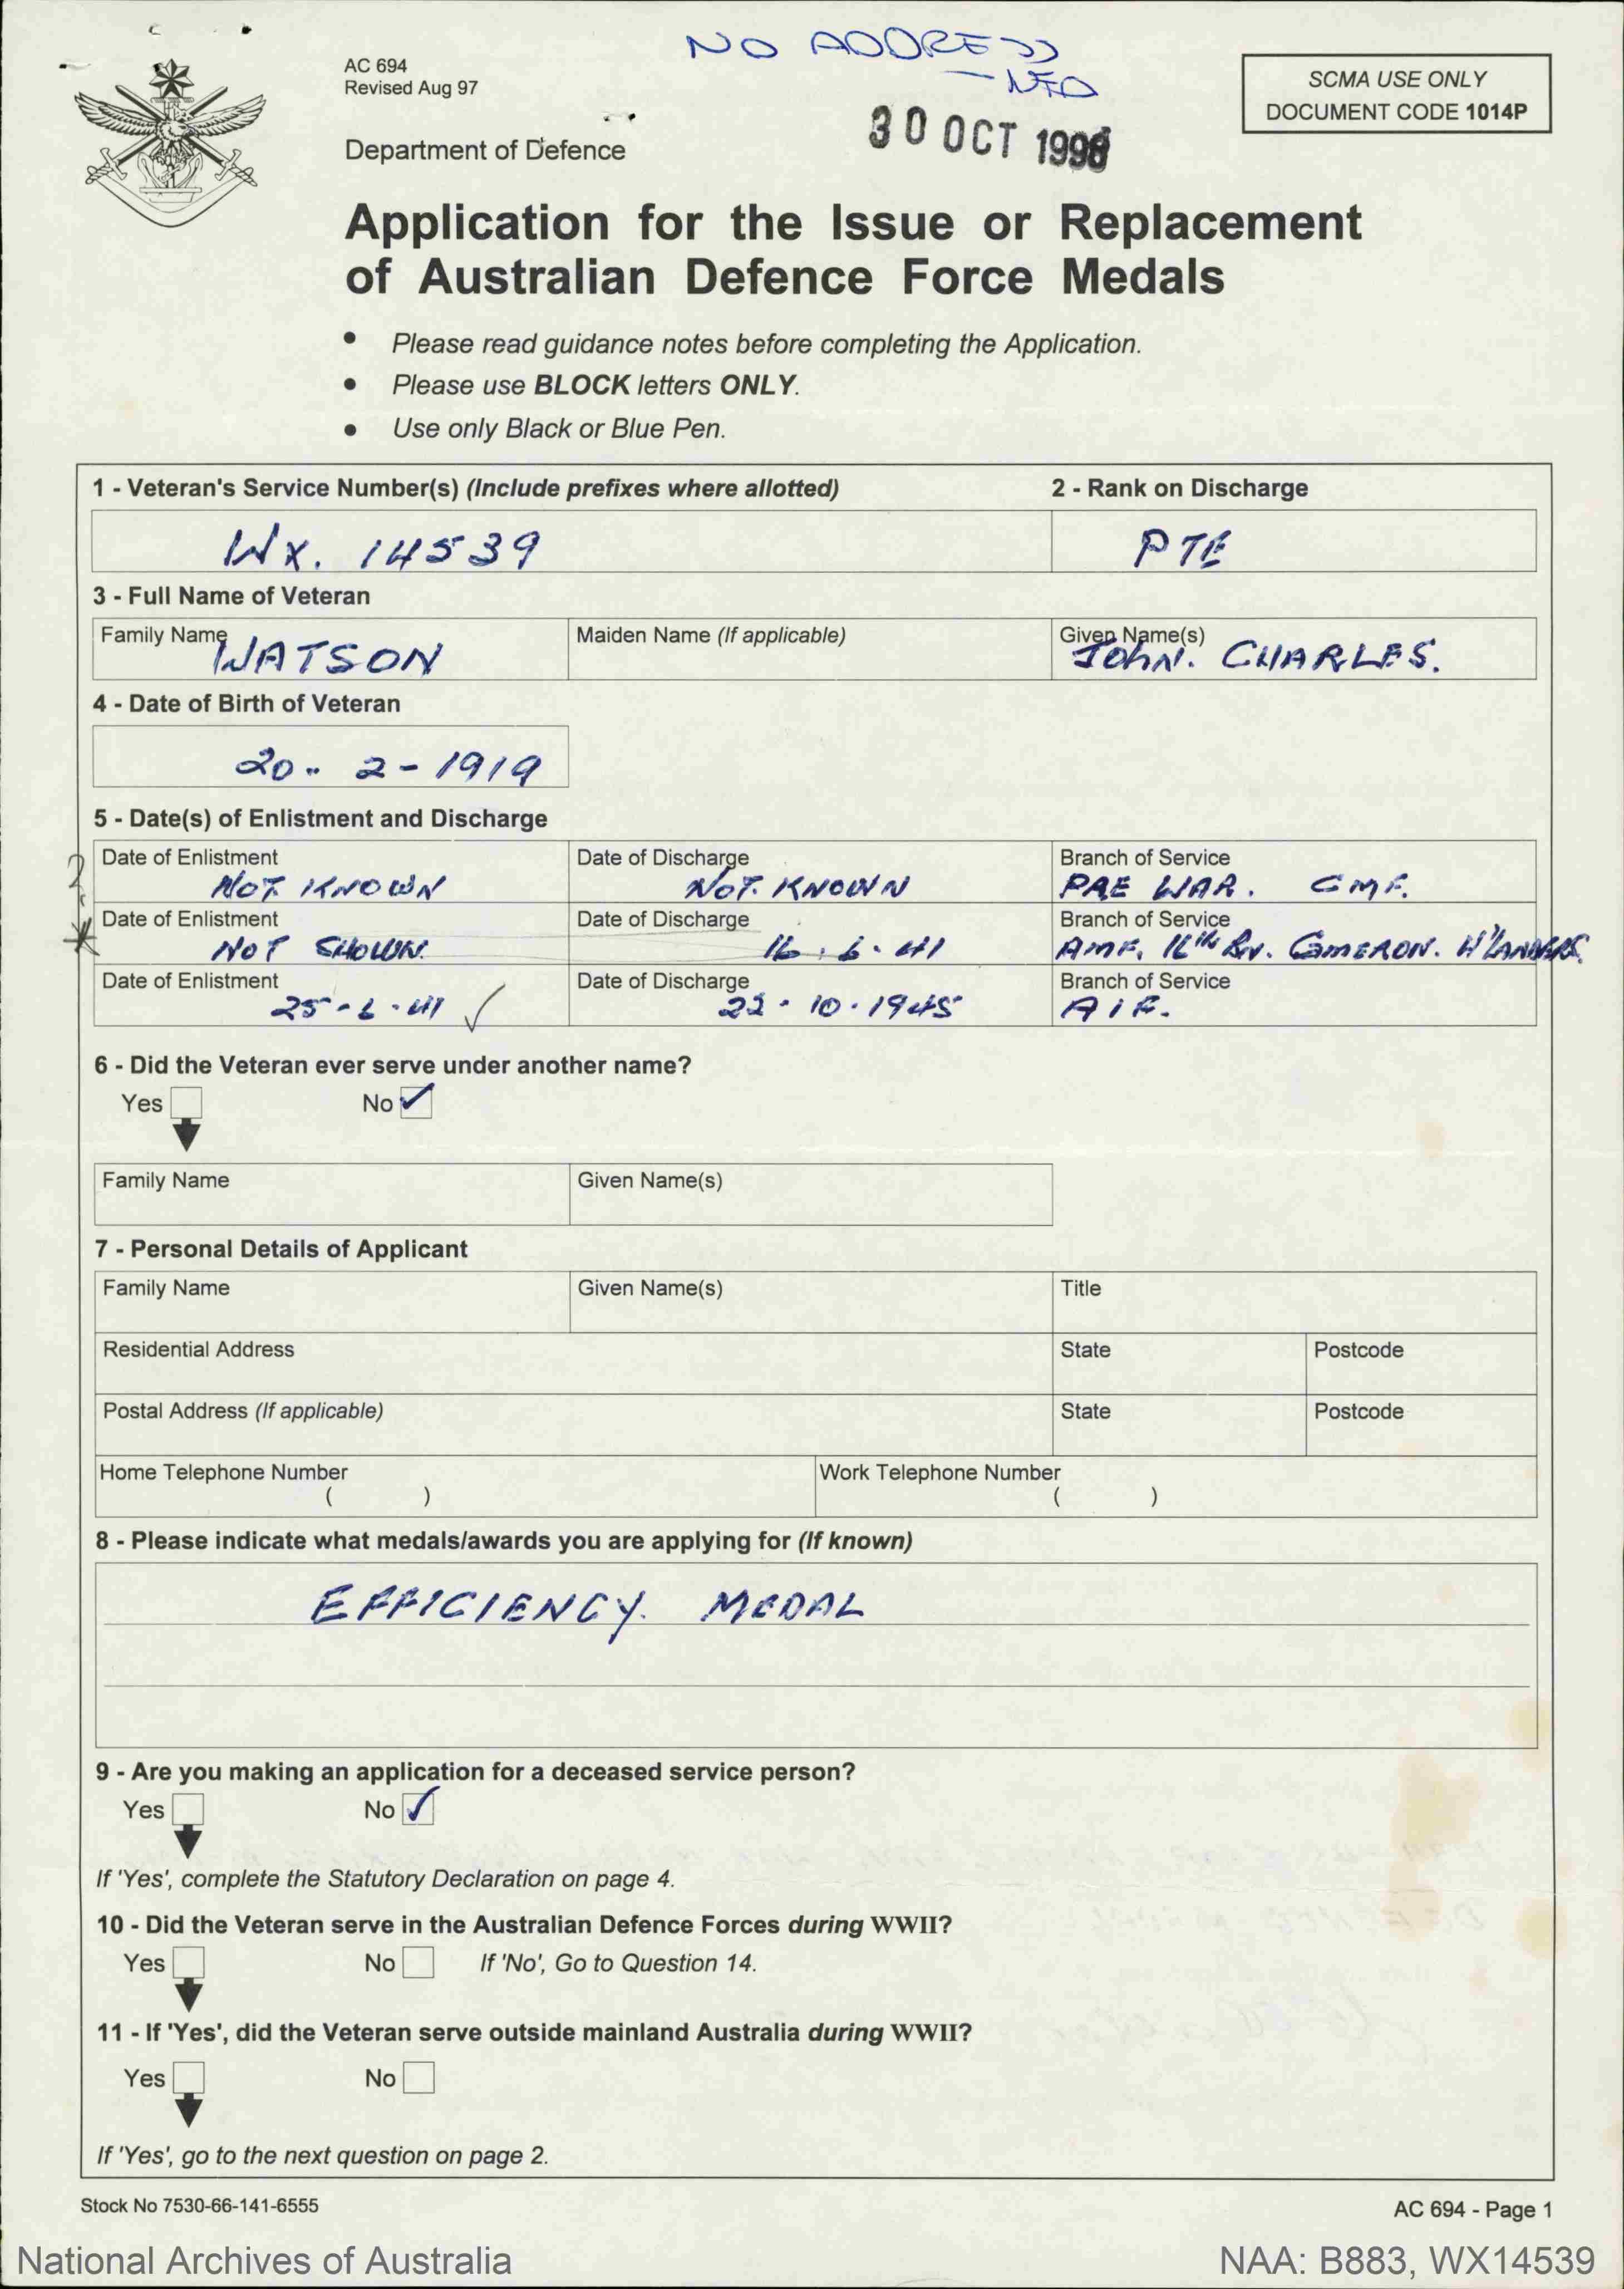 NO ADDRESS
- NFD
AC 694
Revised Aug 97
SCMA USE ONLY
DOCUMENT CODE 1014P
30 OCT 1998
Department of Defence
Application for the Issue or Replacement
of Australian Defence Force Medals
• Please read guidance notes before completing the Application.
• Please use BLOCK letters ONLY.
• Use only Black or Blue Pen.
1 - Veteran's Service Number(s) (Include prefixes where allotted) 2 - Rank on Discharge
WX. 14539 PTE
3 - Full Name of Veteran
Family Name Maiden Name (If applicable) Given Name(s)
WATSON JOHN. CHARLES.
4 - Date of Birth of Veteran
20 - 2 - 1919
5 - Date(s) of Enlistment and Discharge
Date of Enlistment Date of Discharge Branch of Service
NOT KNOWN NOT. KNOWN PRE WAR. CMF.
Date of Enlistment Date of Discharge Branch of Service
NOT SHOWN. 16.6.41 AMF. 16th Bn. CAMERON. H'LANDERS.
Date of Enlistment Date of Discharge Branch of Service
25-6-41 22.10.1945 AIF.
6 - Did the Veteran ever serve under another name?
Yes No ✓
Family Name Given Name(s)
7 - Personal Details of Applicant
Family Name Given Name(s) Title
Residential Address State Postcode
Postal Address (If applicable) State Postcode
Home Telephone Number Work Telephone Number
( ) ( )
8 - Please indicate what medals/awards you are applying for (If known)
EFFICIENCY. MEDAL
9 - Are you making an application for a deceased service person?
Yes No ✓
If 'Yes', complete the Statutory Declaration on page 4.
10 - Did the Veteran serve in the Australian Defence Forces during WWII?
Yes No If 'No', Go to Question 14.
11 - If 'Yes', did the Veteran serve outside mainland Australia during WWII?
Yes No
If 'Yes', go to the next question on page 2.
Stock No 7530-66-141-6555 AC 694 - Page 1
National Archives of Australia NAA: B883, WX14539